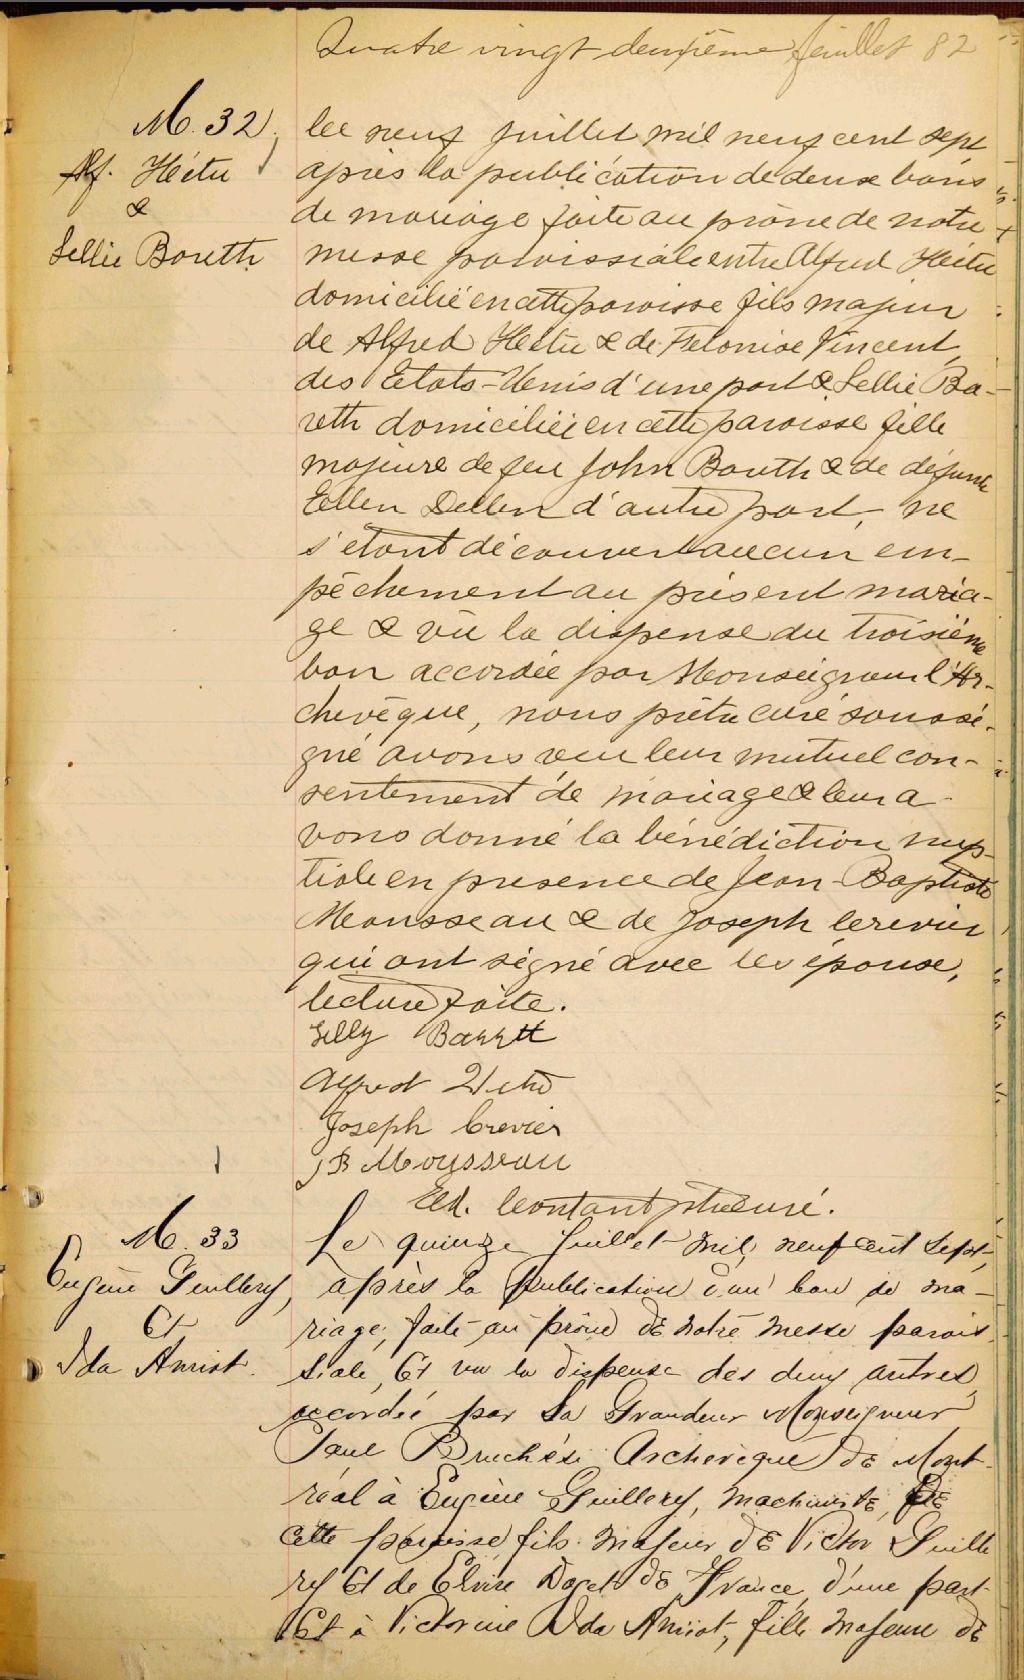 Quatre vingt deuxième feuillet 82
M. 32
Alf. Hêtu
&
Lellie Boreth
Le neuf juillet mil neuf cent sept
après la publication de deux bans
de mariage faite au prône de notre
messe paroissiale entre Alfred Hêtu
domicilié en cette paroisse fils majeur
de Alfred Hetu & de Felonise Vincent
des Etats-Unis d'une part & Lellie Ba-
reth domiciliée en cette paroisse fille
majeure de feu John Boreth & de défunte
Ellen Dellen d'autre part, ne
s'étant découvert aucun em-
pêchement au présent maria-
ge & vu la dispense du troisième
ban accordée par Monseigneur l'Ar-
chevêque, nous prêtre curé soussi-
gné avons reçu leur mutuel con-
sentement de mariage & leur a-
vons donné la bénédiction nup-
tiale en presence de Jean-Baptiste
Mousseau & de Joseph Crevier
qui ont signé avec les époux,
lecture faite.
Lilly Barrett
Alfred Hetu
Joseph Crevier
JB Moysseau
Ed. Contant ptre curé.
M. 33
Eugène Guillery,
Et
Ida Amiot.
Le quinze Juillet mil neuf cent sept,
après la publication d'un ban de ma-
riage, faite au prône de notre messe parois
siale, Et vu la dispense des deux autres,
accordée par Sa Grandeur Monseigneur
Paul Bruchési Archevêque de Mont-
réal à Eugène Guillery, machiniste, de
cette paroisse, fils majeur de Victor Guille
ry Et de Elvire Doget de France, d'une part
Et à Victorine Ida Amiot, fille majeure de